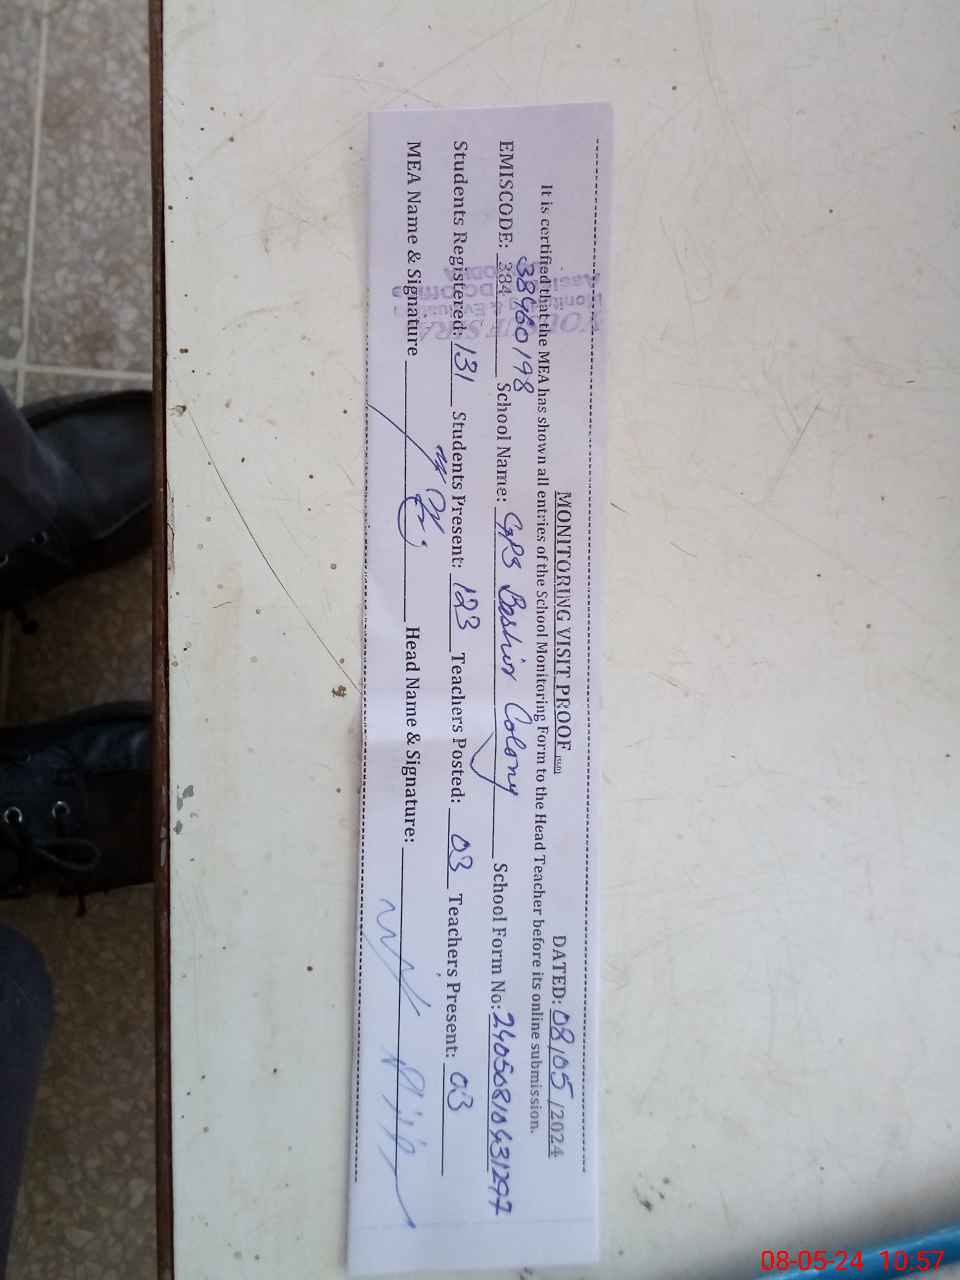 MONITORING VISIT PROOF
DATED: 08/05/2024
It is certified that the MEA has shown all entries of the School Monitoring Form to the Head Teacher before its online submission.
38460198
EMISCODE: 384 School Name: GPS Bashir Colony School Form No: 24050810431297
Students Registered: 131 Students Present: 123 Teachers Posted: 03 Teachers Present: 03
MEA Name & Signature Head Name & Signature:
08-05-24 10:57